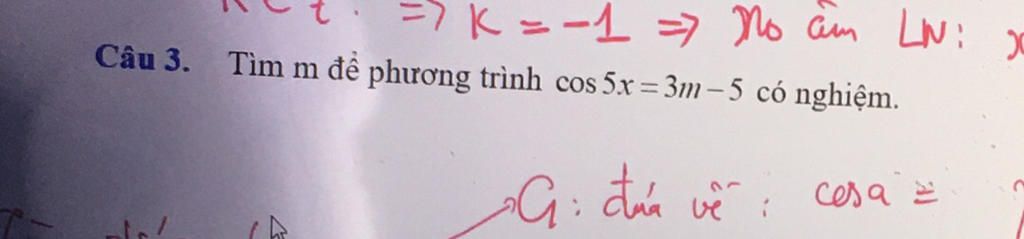 => K = -1 => No âm LN:
Câu 3. Tìm m để phương trình cos 5x = 3m − 5 có nghiệm.
G: đưa về : cosa =